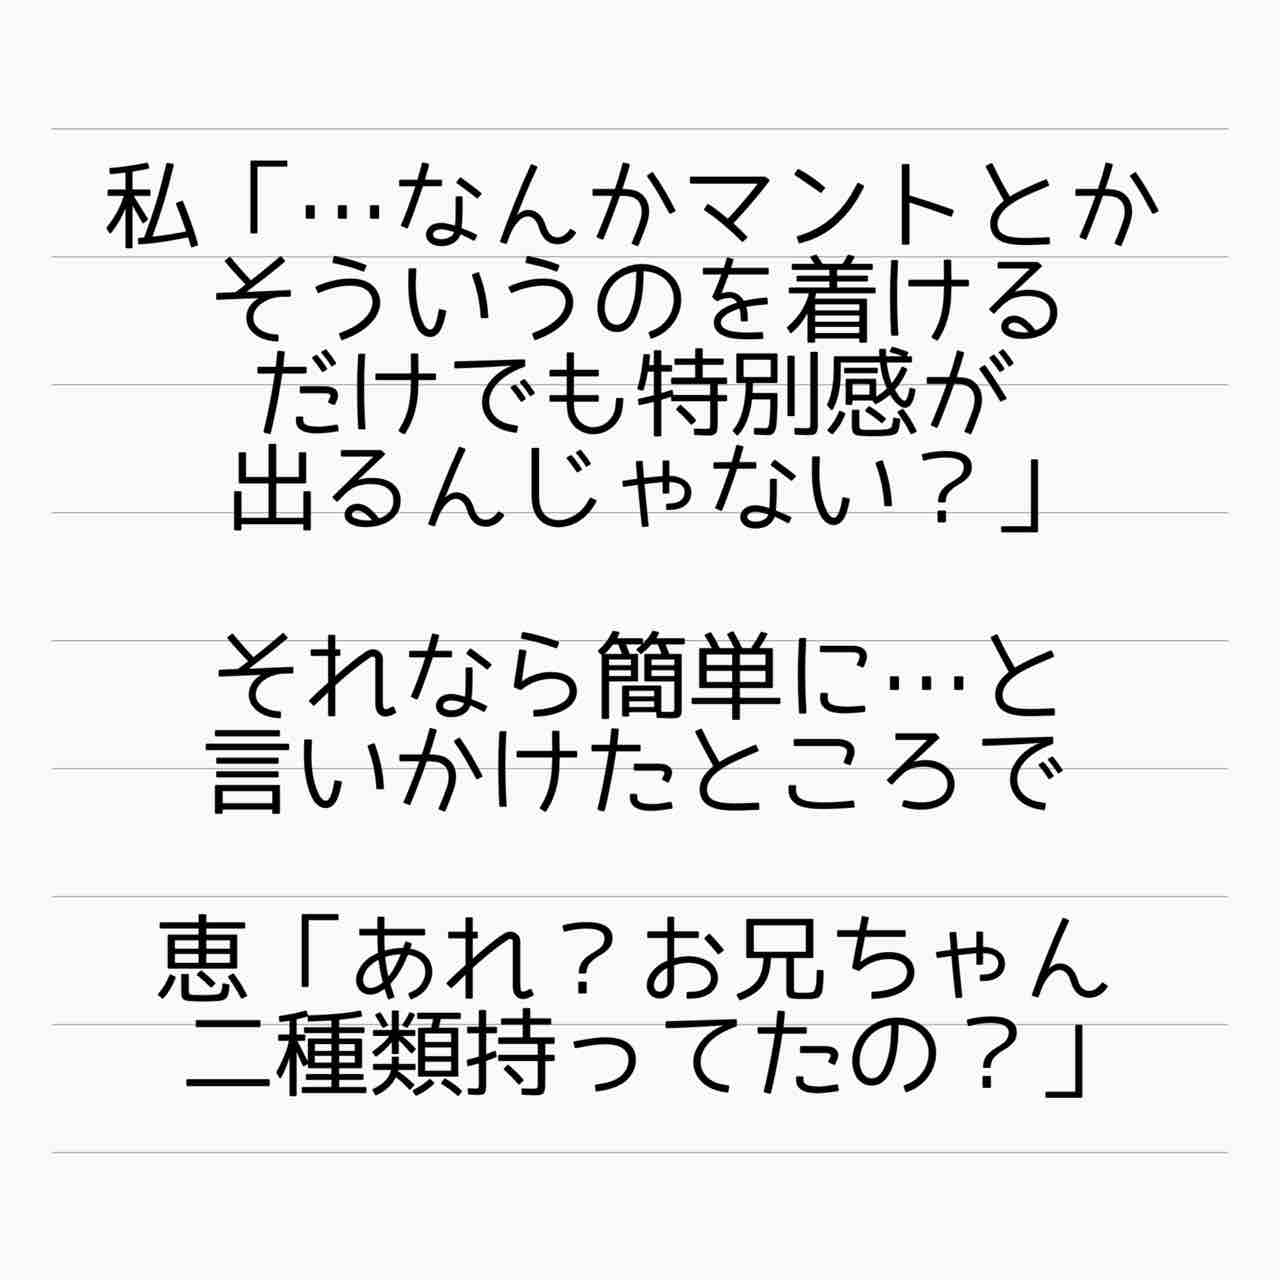 私「…なんかマントとか
そういうのを着ける
だけでも特別感が
出るんじゃない？」
それなら簡単に…と
言いかけたところで
恵「あれ？お兄ちゃん
二種類持ってたの？」